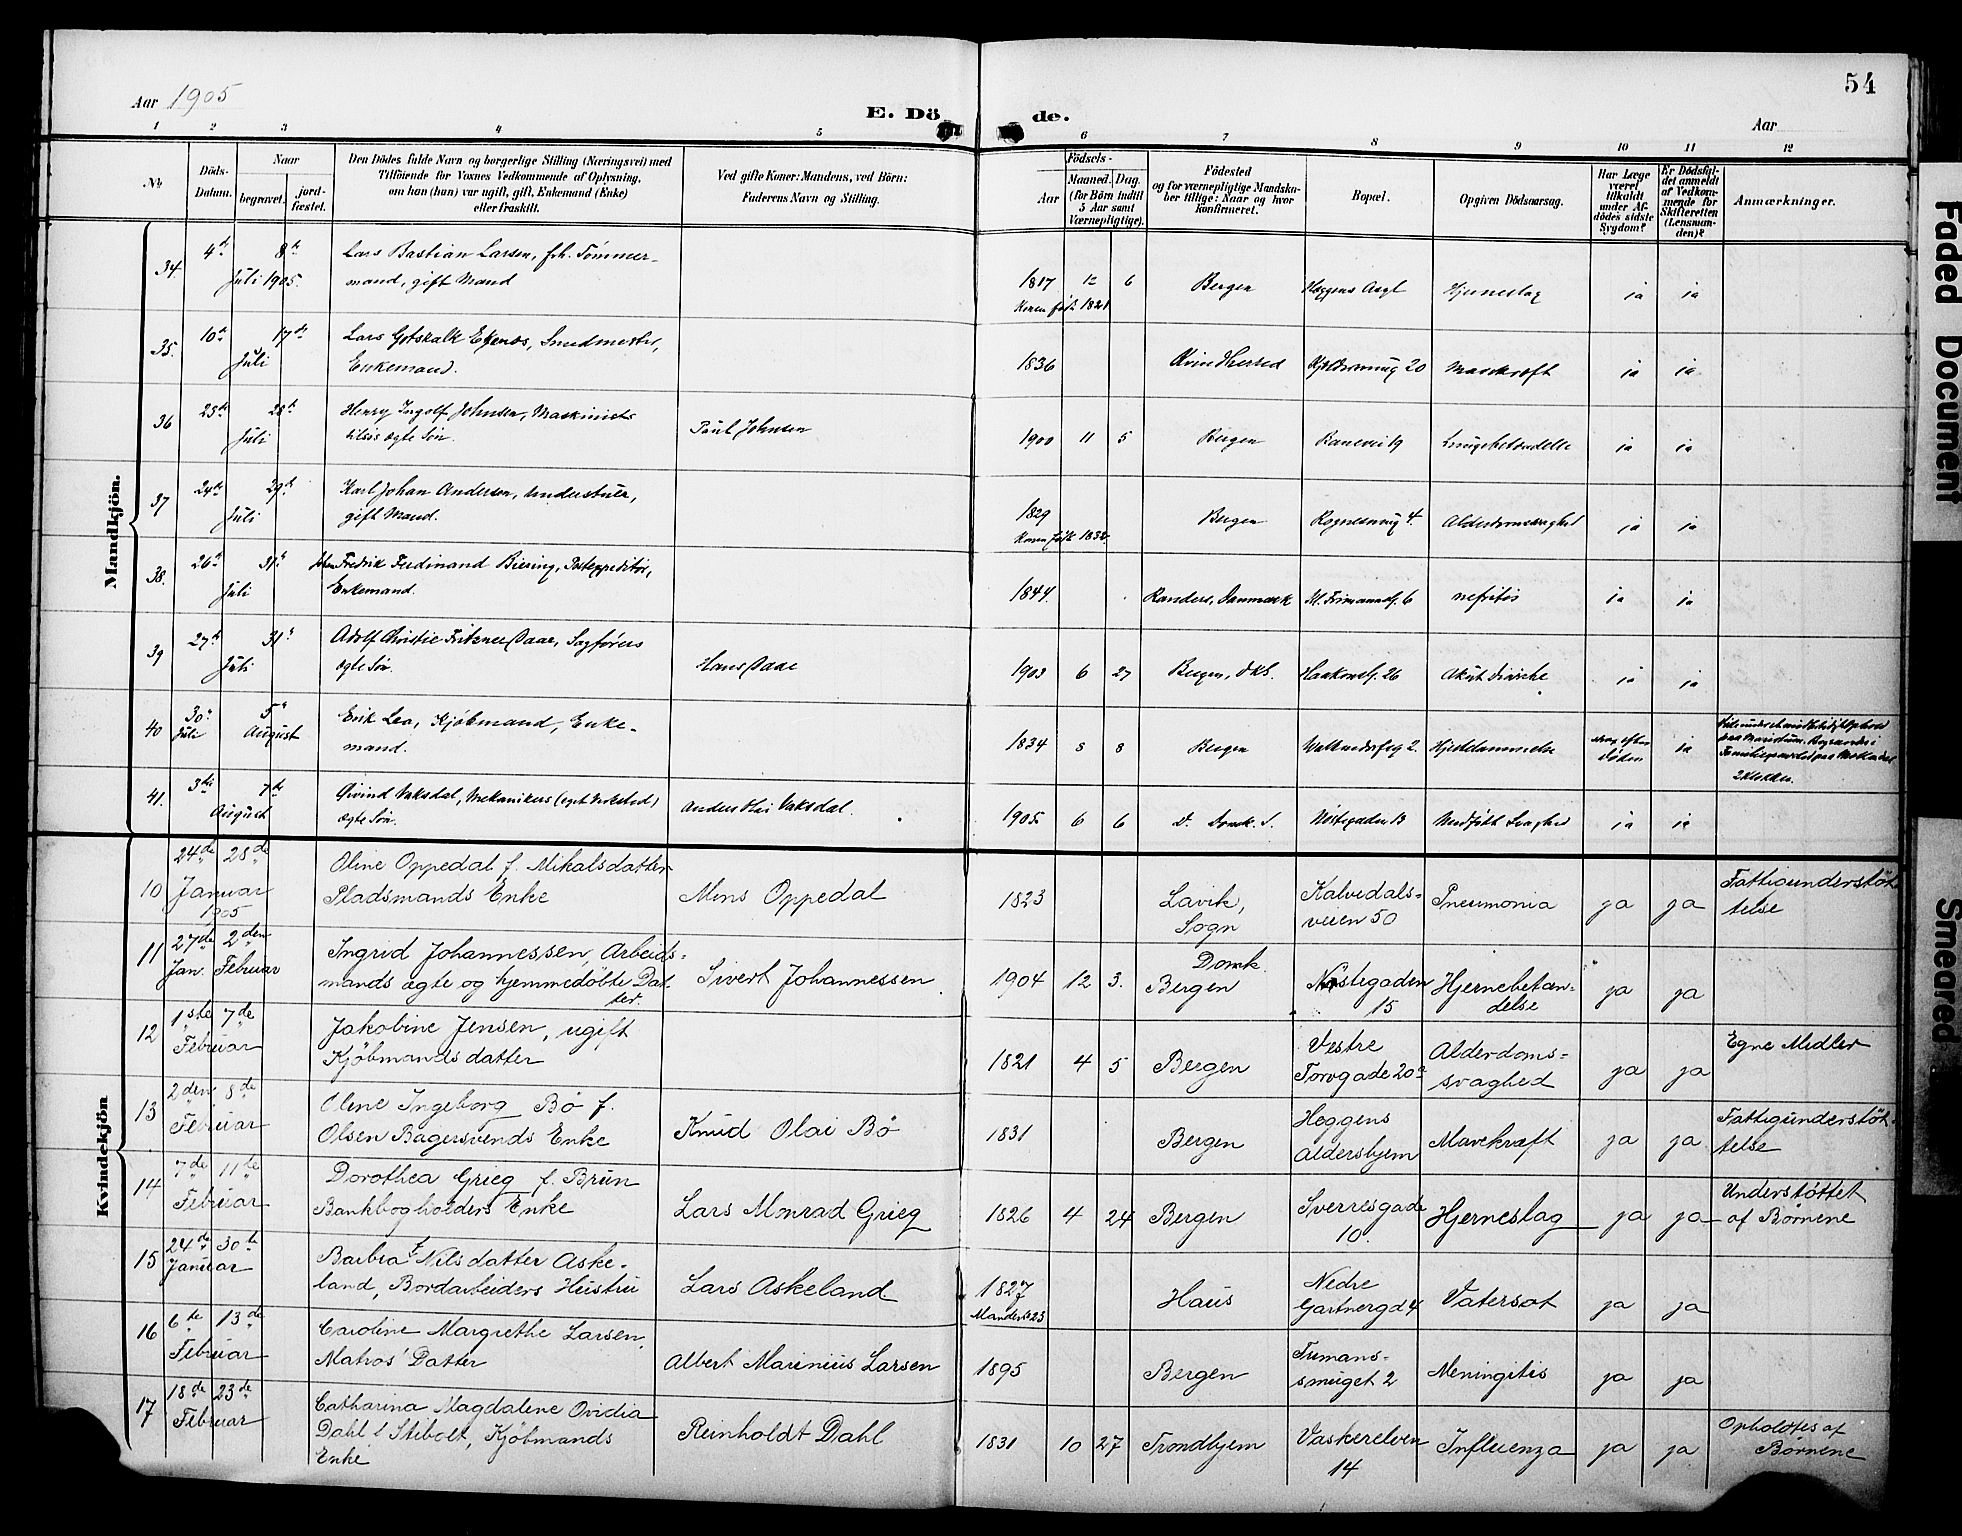 54
Aar 1905
E. Dö de.
Aar
1 2 3 4 5 6 7 8 9 10 11 12
No.
Döds-
Datum.
Naar
begravet.
jord-
fæstet.
Den Dödes fulde Navn og borgerlige Stilling (Næringsvei) med
Tilföiende for Voxnes Vedkommende af Oplysning,
om han (hun) var ugift, gift, Enkemand (Enke)
eller fraskilt.
Ved gifte Koner: Mandens, ved Börn:
Faderens Navn og Stilling.
Födsels-
Aar
Maaned. Dag.
(for Börn indtil
5 Aar samt
Værnepligtige).
Födested
og for værnepligtige Mandska-
ber tillige: Naar og hvor
konfirmeret.
Bopæl.
Opgiven Dödsaarsag.
Har Læge
været
tilkaldt
under Af-
dödes sidste
Sygdom?
Er Dödsfal-
det anmeldt
af Vedkom-
mende for
Skifteretten
(Lensman-
den)?
Anmærkninger.
Mandkjön.
34. 4de 8de Juli 1905. Lars Bastian Larsen, fh. Tømmer-
mand, gift Mand 1817 12 6 Bergen Hjerneslag ja ja
Konen født 1821
35. 10de 17de Juli Lars Gotskalk Ekenes, Smedmester,
Enkemand. 1836 Kvindherred 20 Mavekræft ja ja
36 25de 28de Juli Henry Ingolf Johnsen, Maskinists
ægte Søn. Paul Johnsen 1900 11 5 Bergen Lungebetændelse ja ja
37 24de 29de Juli Karl Johan Andersen,
gift Mand. 1829 Bergen 4. Alderdomssvaghed ja ja
Konen født 1832
38. 26de 31te Juli Fredrik Ferdinand Biering, Postexpeditør,
Enkemand. 1844 Randers, Danmark 6 nefritis ja ja
39 27de 31te Juli Adolf Christie Fritzner Daae, Sagførers
ægte Søn. Hans Daae 1903 6 27 Bergen, Dks. Haakonsg. 26 Akut Diarrhe ja ja
40 30te Juli 5te August Erik Lea, Kjøbmand, Enke-
mand. 1834 8 8 Bergen 2. Hjertelammelse strax efter
Døden ja
41. 3die 7de August Øivind Vaksdal, Mekanikers (eget Verksted)
ægte Søn. Anders Vaksdal. 1905 6 6 D. Domk. S. Nøstegaden 13 Medfødt Svaghed ja ja
Kvindekjön
10 24de 28de Januar 1905 Oline Oppedal f. Mikalsdatter
Pladsmands Enke Mons Oppedal 1823 Lavik,
Sogn Kalvedals-
veien 50 Pneumonia ja ja Fattigunderstøt-
telse
11 27de Jan. 2den Februar Ingrid Johannessen, Arbeids-
mands ægte og hjemmedøbte Dat-
ter. Sivert Johannessen. 1904 12 3. Domk.
Bergen Nøstegaden
15 Hjernebetæn-
delse ja ja
12 1ste 7de Februar Jakobine Jensen, ugift
Kjøbmandsdatter 1821 4 5 Bergen Vestre
Torvgade 20a Alderdoms-
svaghed ja ja Egne Midler
13 2den 8de Februar Oline Ingeborg Bø f.
Olsen Bagersvends Enke Knud Olai Bø 1831 Bergen Heggens
aldershjem Mavekræft ja ja Fattigunderstøt-
telse
14 7de 11te Februar Dorothea Grieg f. Brun
Bankbogholders Enke Lars Monrad Grieg 1826 4 24 Bergen Sverresgade
10. Hjerneslag ja ja Understøttet
af Børnene
15 24de 30te Januar Barbra f. Nilsdatter Aske-
land, Bordarbeiders Hustru Lars Askeland. 1827
Manden 23 Haus Nedre
Gartnergd 4 Vatersot ja ja
16 6te 13de Februar Caroline Margrethe Larsen,
Matros' Datter Albert Marinius Larsen 1895 Bergen
smuget 2 Meningitis ja ja
17 18de 23de Februar Catharina Magdalene Ovidia
Dahl f Stibolt, Kjøbmands
Enke Reinholdt Dahl 1831 10 27 Trondhjem Vaskerelven
14 Influenza ja ja Opholdtes af
Børnene
Faded Document
Smeared